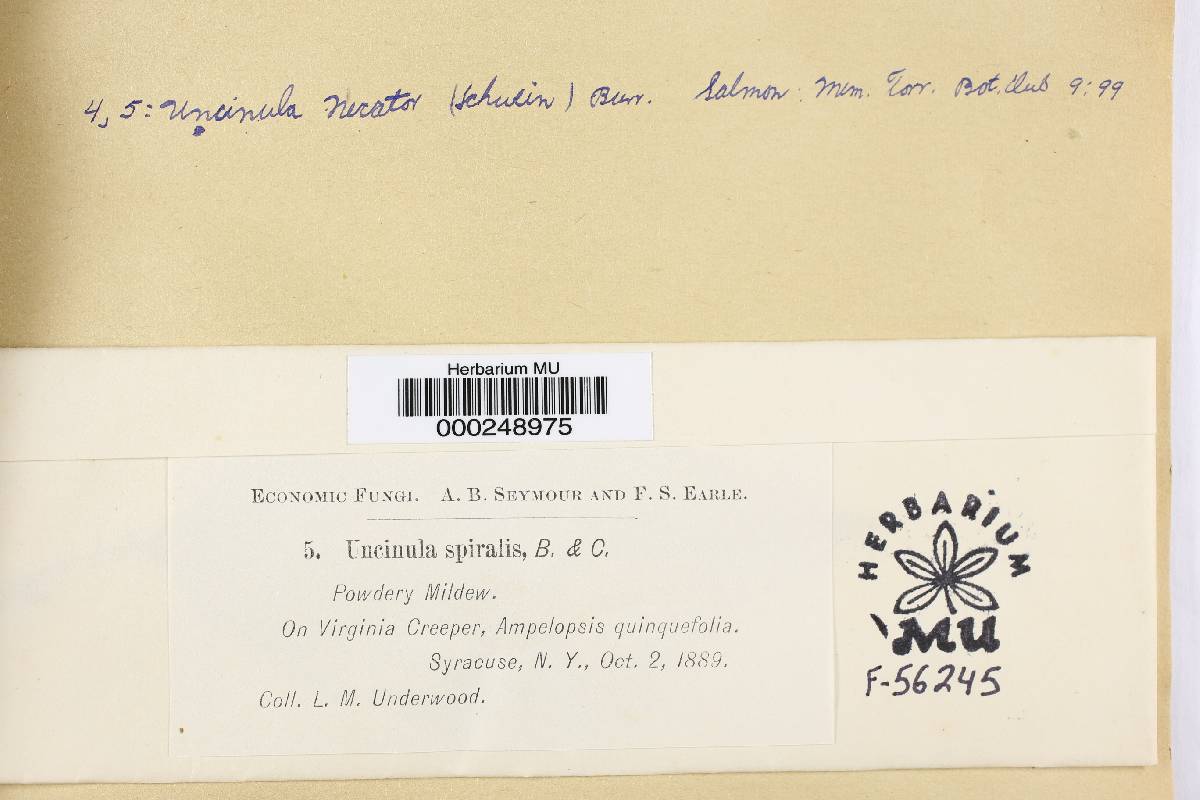 4, 5: Uncinula Necator (Schwein) Burr. Salmon: Mem. Torr. Bot. Club 9:99
Herbarium MU
000248975
ECONOMIC FUNGI. A. B. SEYMOUR AND F. S. EARLE.
5. Uncinula spiralis, B. & C.
Powdery Mildew.
On Virginia Creeper, Ampelopsis quinquefolia.
Syracuse, N. Y., Oct. 2, 1889.
Coll. L. M. Underwood.
HERBARIUM
MU
F-56245